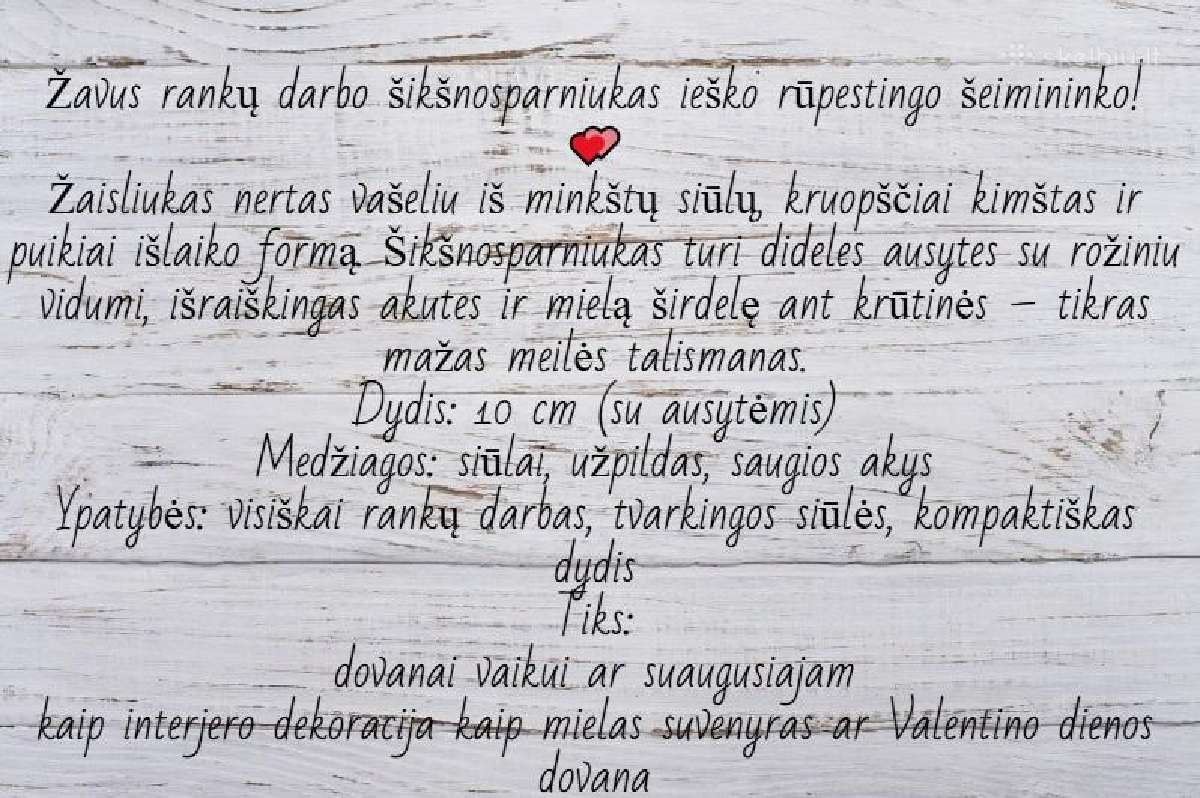 skelbiu.lt
Žavus rankų darbo šikšnosparniukas ieško rūpestingo šeimininko!
Žaisliukas nertas vašeliu iš minkštų siūlų, kruopščiai kimštas ir
puikiai išlaiko formą. Šikšnosparniukas turi dideles ausytes su rožiniu
vidumi, išraiškingas akutes ir mielą širdelę ant krūtinės – tikras
mažas meilės talismanas.
Dydis: 10 cm (su ausytėmis)
Medžiagos: siūlai, užpildas, saugios akys
Ypatybės: visiškai rankų darbas, tvarkingos siūlės, kompaktiškas
dydis
Tiks:
dovanai vaikui ar suaugusiajam
kaip interjero dekoracija kaip mielas suvenyras ar Valentino dienos
dovana